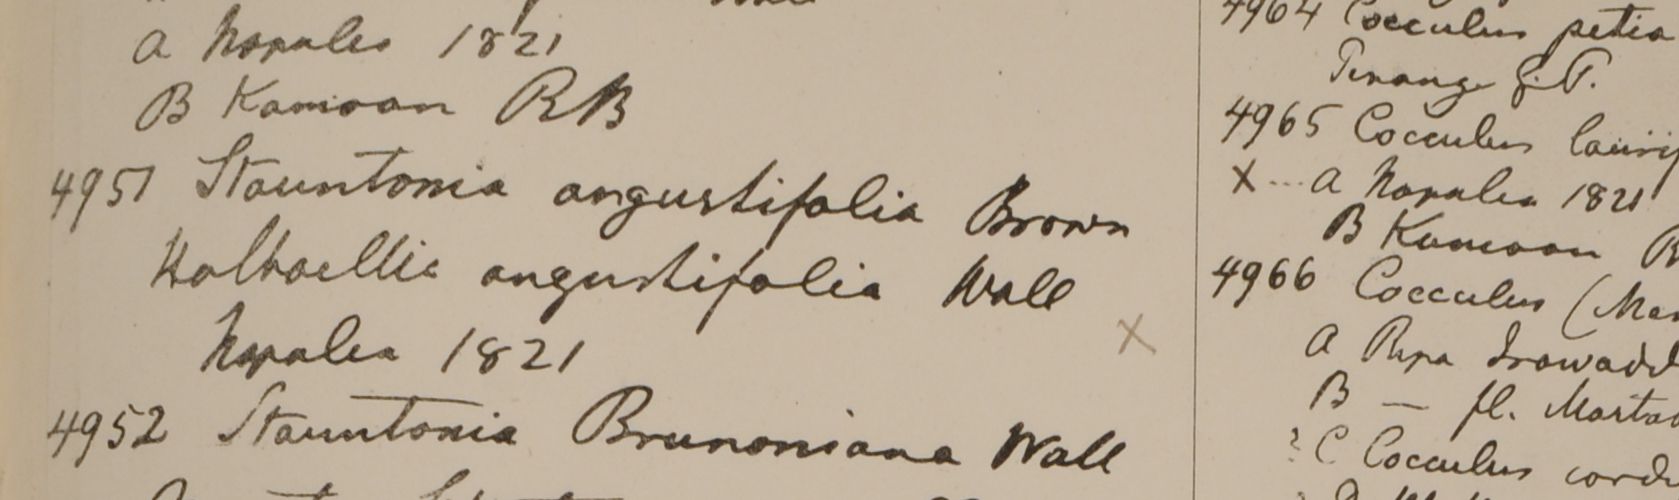 a Napalea 1821
B Kamoan RB
4951 Stauntonia angustifolia Brown
Holboellia angustifolia Wall
Napalea 1821
x
4952 Stauntonia Brunoniana Wall
4964 Cocculus petio
Penang G.P.
4965 Cocculus lauri
x a Napalea 1821
B Kamoan B
4966 Cocculus (Men
a Ripa Irawadd
B — fl. Martab
? C Cocculus cord